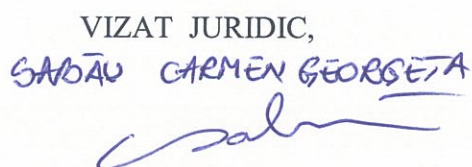 VIZAT JURIDIC,
SABĂU CARMEN GEORGETA